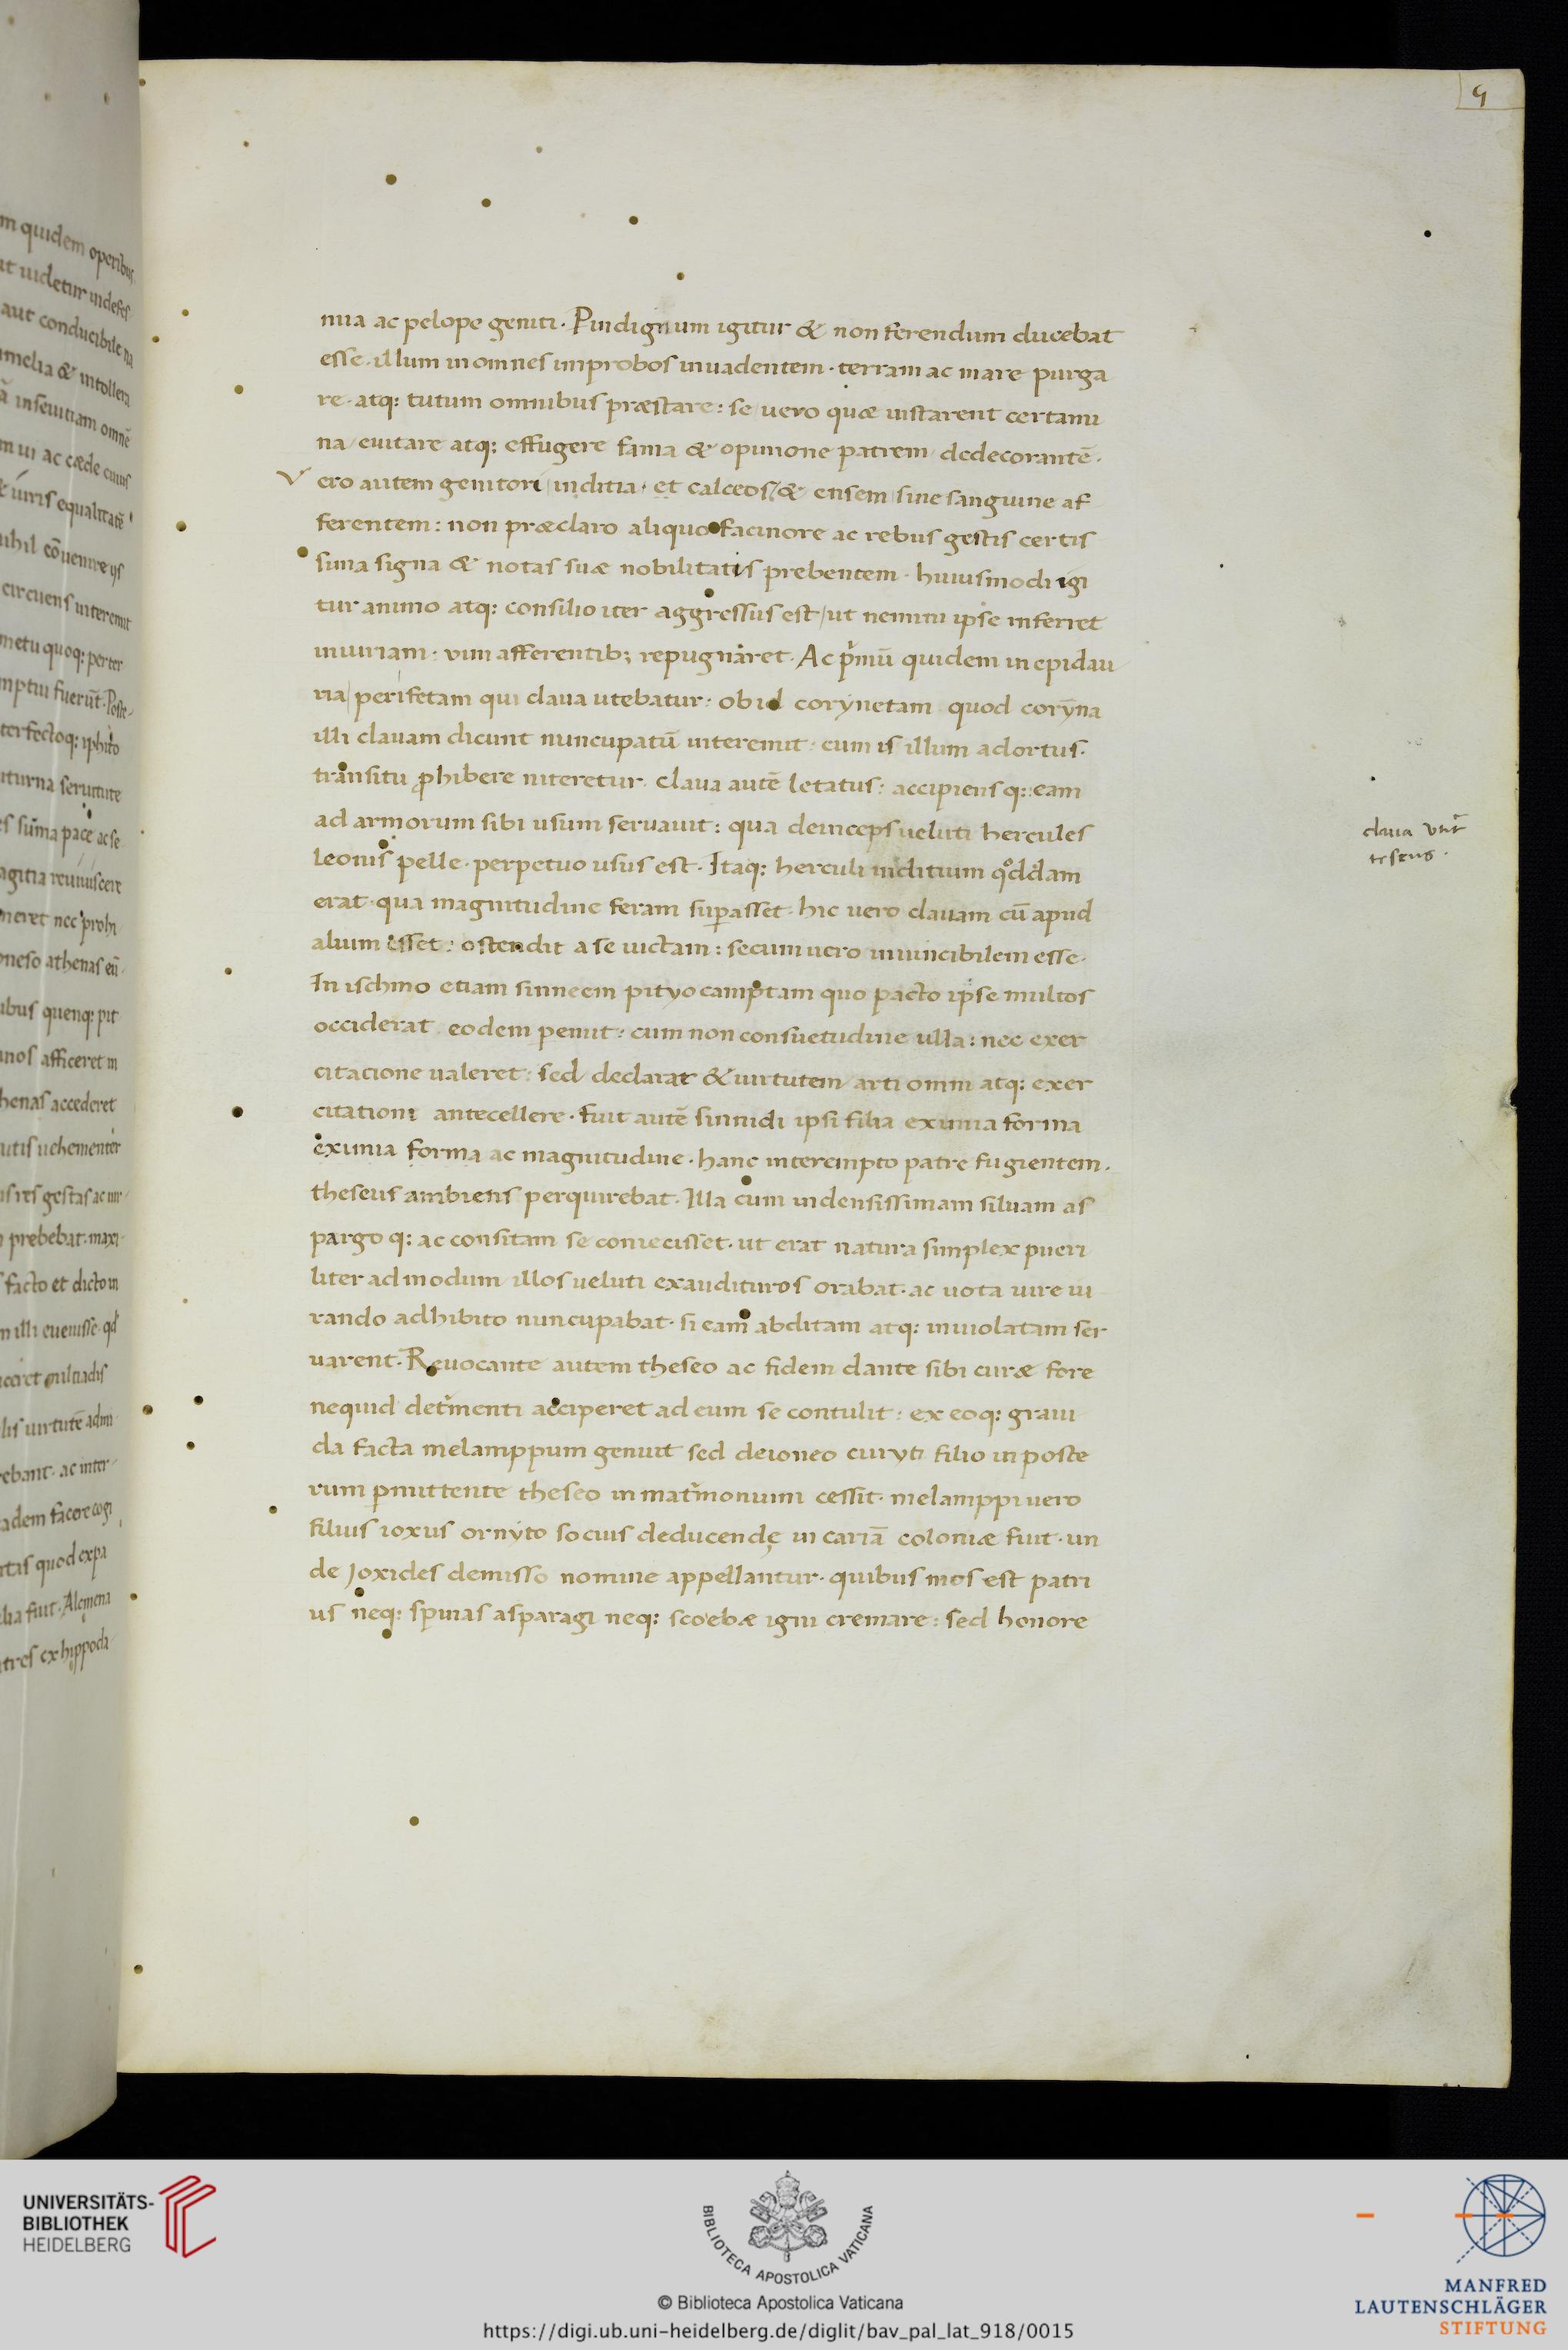 m quidem operibus
it uidetur indefes
aut conducibile na
melia & intollera
ã inseuitiam omnẽ
m ui ac cæde cuius
& iuris equalitatẽ
nihil cõuenire ijs
circuens interemit
metu quoq: perter
mptui fuerũt. Poste-
terfectoq: iphito
uturna seruitute
es sũma pace ac se
agitia reuiuiscere
neret nec prohi
oneso athenas eũ
ibus quenq: pit
inos afficeret in
henas accederet
utis uehementer
is res gestas ac uir
prebebat. maxi
facto et dicto in
n illi euenisse. qđ
iceret miltiadis
lis uirtutẽ admi
rebant. ac inter
adem facere cogi
rtas quod expa
lia fuit. Alcmena
tres ex hippoda
9
mia ac pelope geniti. Pindignum igitur & non ferendum ducebat
esse. illum in omnes improbos inuadentem. terram ac mare purga
re. atq: tutum omnibus præstare: se uero quæ instarent certami
na euitare atq: effugere fama & opinione patrem dedecorantẽ.
V ero autem genitori inditia. et calceos & ensem sine sanguine af
ferentem: non præclaro aliquo facinore ac rebus gestis certis
sima signa & notas suæ nobilitatis prebentem. huiusmodi igi
tur animo atq: consilio iter aggressus est ut nemini ipse inferret
iniuriam: uim afferentib; repugnaret. Ac pͥmũ quidem in epidau
ria perifetam qui claua utebatur: ob id corynetam quod coryna
illi clauam dicunt nuncupatũ interemit: cum is illum adortus.
transitu ꝓhibere niteretur. Claua autẽ letatus: accipiensq: eam
ad armorum sibi usum seruauit: qua deinceps ueluti hercules
leonis pelle. perpetuo usus est. Itaq: herculi inditium qͦddam
erat. qua magnitudine feram suꝑasset. hic uero clauam cũ apud
alium esset: ostendit a se uictam: secum uero inuincibilem esse.
In ischmo etiam sinneem pityocamptam quo pacto ipse multos
occiderat eodem pemit: cum non consuetudine ulla: nec exer
citacione ualeret: sed declarat & uirtutem arti omni atq: exer
citationi antecellere. fuit autẽ sinnidi ipsi filia eximia forma
eximia forma ac magnitudine. hanc interempto patre fugientem.
theseus ambiens perquirebat. Illa cum in densissimam siluam as
pargo q: ac consitam se coniecisset. ut erat natura simplex pueri
liter admodum illos ueluti exaudituros orabat. ac uota iure iu
rando adhibito nuncupabat. si eam abditam atq: inuiolatam ser
uarent. Reuocante autem theseo ac fidem dante sibi curæ fore
nequid detͥmenti acciperet ad eum se contulit: ex eoq: graui
da facta melamppum genuit sed deioneo euryti filio in poste
rum ꝑmittente theseo in matͥmonium cessit. melamppi uero
filius ioxus ornyto socius deducendę in cariã coloniæ fuit. un
de Joxides demisso nomine appellantur. quibus mos est patri
us neq: spinas asparagi neq: scoebæ igni cremare: sed honore
claua utit̃
teseus.
UNIVERSITÄTS-
BIBLIOTHEK
HEIDELBERG
BIBLIOTECA APOSTOLICA VATICANA
© Biblioteca Apostolica Vaticana
https://digi.ub.uni-heidelberg.de/diglit/bav_pal_lat_918/0015
MANFRED
LAUTENSCHLÄGER
STIFTUNG